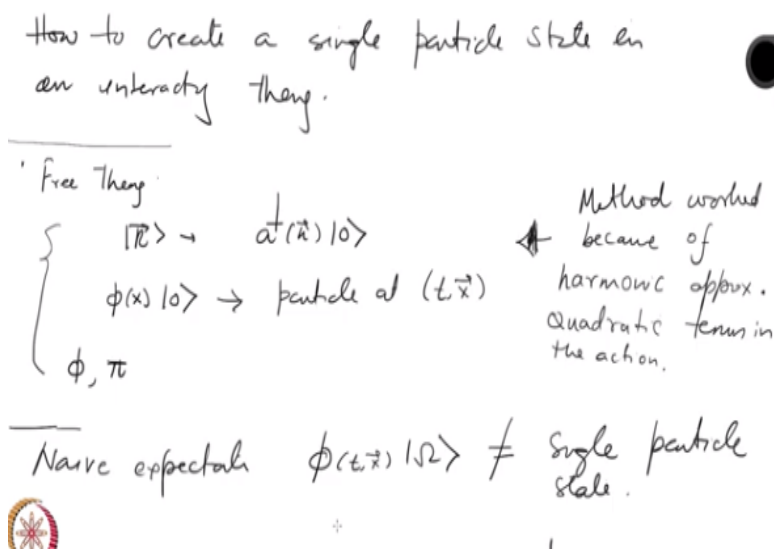 How to create a single particle state in
an interacting theory.
Free Theory
|k⃗⟩ → a†(k⃗)|0⟩
ϕ(x)|0⟩ → particle at (t, x⃗)
ϕ, π
Method worked
because of
harmonic approx.
Quadratic terms in
the action.
Naive expectah ϕ(t,x⃗) |Ω⟩ ≠ single particle
state.